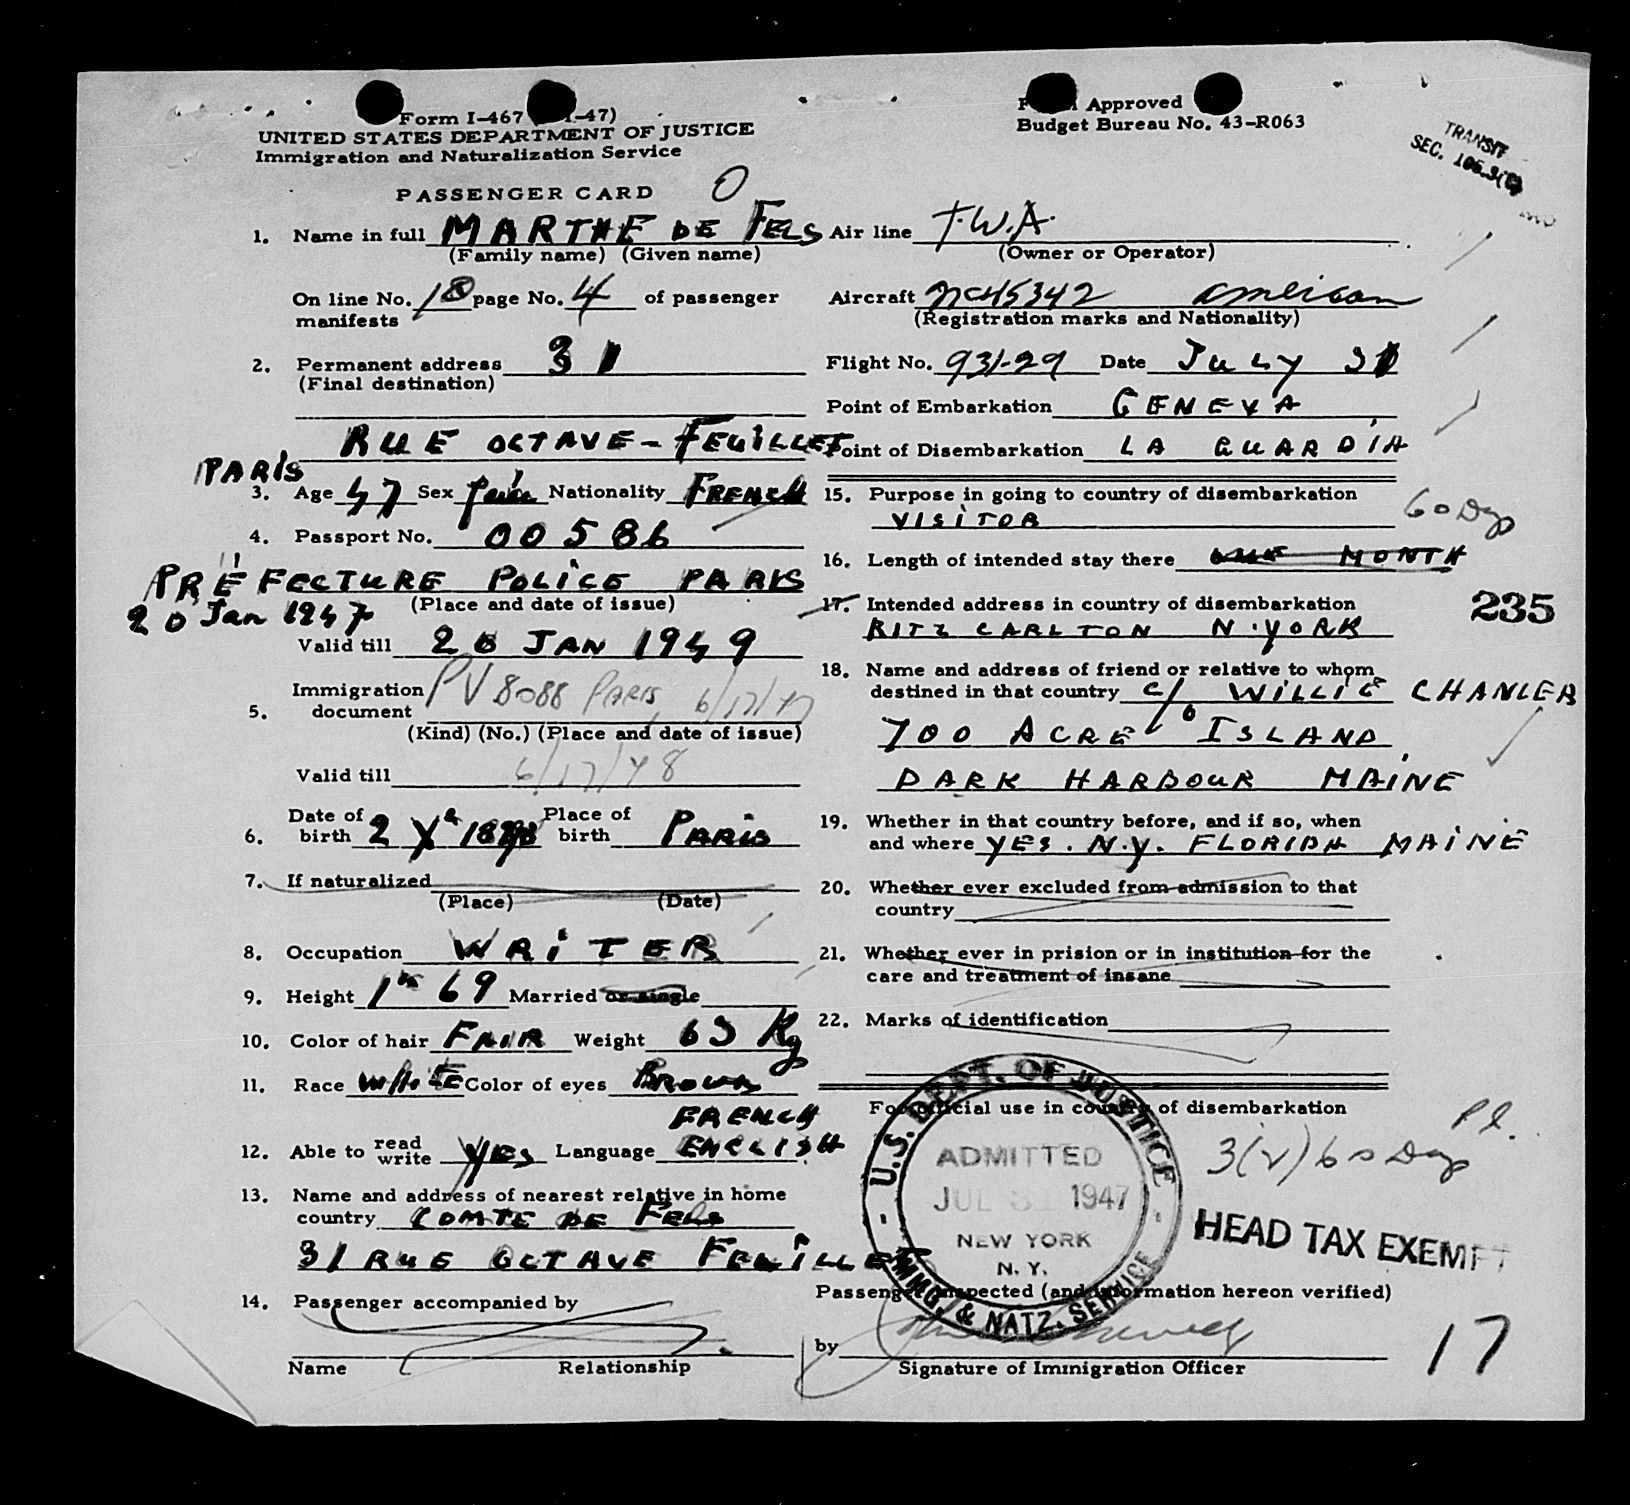 Form I-467 -47)
UNITED STATES DEPARTMENT OF JUSTICE
Immigration and Naturalization Service
PASSENGER CARD O
1. Name in full MARTHE DE FELS
(Family name) (Given name)
On line No. 18 page No. 4 of passenger
manifests
2. Permanent address 31
(Final destination)
RUE OCTAVE-FEUILLET
PARIS
3. Age 47 Sex Nationality FRENCH
4. Passport No. 00586
PRÉFECTURE POLICE PARIS
20 Jan 1947 (Place and date of issue)
Valid till 20 JAN 1949
Immigration PV 8088 PARIS, 6/17/47
5. document
(Kind) (No.) (Place and date of issue)
Valid till 6/17/48
Date of Place of
6. birth 2 birth PARIS
7. If naturalized
(Place) (Date)
8. Occupation WRITER
9. Height 1m 69 Married or single
10. Color of hair FAIR Weight 65 Kg
11. Race WHITE Color of eyes BROWN
FRENCH
12. Able to read write YES Language ENGLISH
13. Name and address of nearest relative in home
country COMTE DE FELS
31 RUE OCTAVE FEUILLET
14. Passenger accompanied by
Name Relationship
Approved
Budget Bureau No. 43-R063
TRANSIT
SEC.
Air line T.W.A.
(Owner or Operator)
Aircraft NC45342 American
(Registration marks and Nationality)
Flight No. 931-29 Date JULY 31
Point of Embarkation GENEVA
Point of Disembarkation LA GUARDIA
15. Purpose in going to country of disembarkation
VISITOR 60 Days
16. Length of intended stay there MONTH
17. Intended address in country of disembarkation
235
RITZ CARLTON N.YORK
18. Name and address of friend or relative to whom
destined in that country c/o WILLIE CHANLER
700 ACRE ISLAND
DARK HARBOUR MAINE
19. Whether in that country before, and if so, when
and where YES. N.Y. FLORIDA MAINE
20. Whether ever excluded from admission to that
country
21. Whether ever in prision or in institution for the
care and treatment of insane
22. Marks of identification
For official use in country of disembarkation
3(2) 60 Days
U.S. DEPT. OF JUSTICE
ADMITTED
JUL 31 1947
NEW YORK
N. Y.
IMMG. & NATZ. SERVICE
HEAD TAX EXEMPT
Passenger inspected (and information hereon verified)
by
Signature of Immigration Officer
17